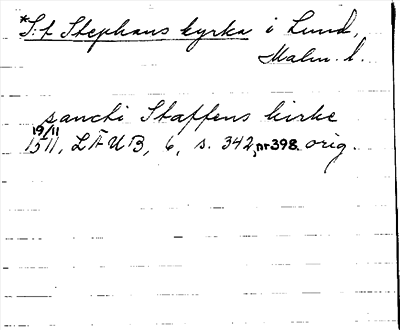 *S:t Stephans kyrka i Lund,
Malm. l.
sancti Staffens kirke
19/11
1511, LÄUB, 6, s. 342, nr 398. orig.